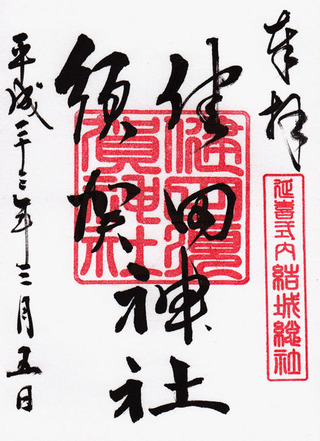 奉拝
延喜式内 結城総社
健田
須賀
神社
健田須賀神社
平成二十三年三月五日